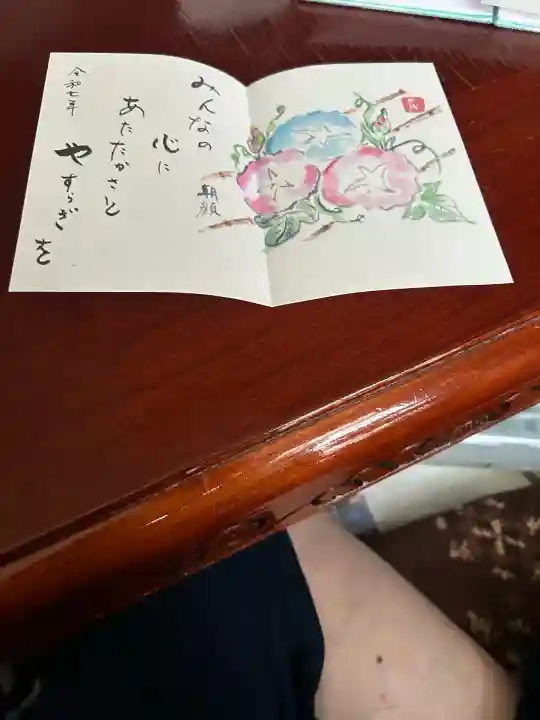 みんなの
心に
あたたかさと
やすらぎを
令和七年
朝顔